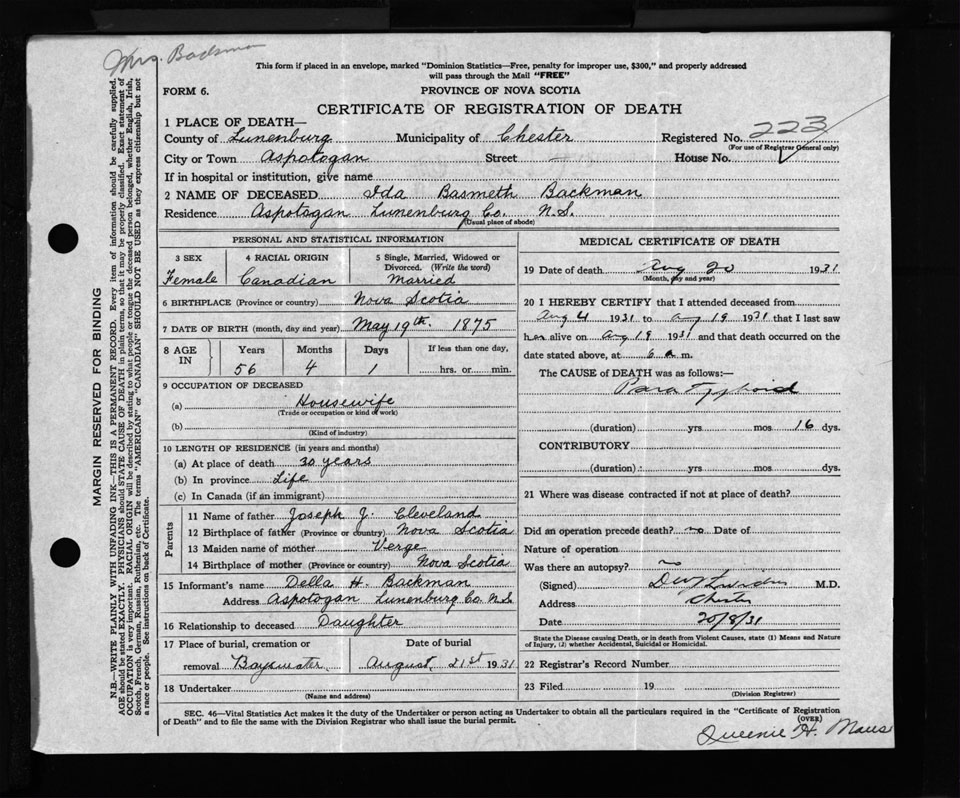 Mrs. Backman
This form if placed in an envelope, marked "Dominion Statistics—Free, penalty for improper use, $300," and properly addressed
will pass through the Mail "FREE"
FORM 6.
PROVINCE OF NOVA SCOTIA
CERTIFICATE OF REGISTRATION OF DEATH
1 PLACE OF DEATH—
County of Lunenburg Municipality of Chester Registered No. 223
(For use of Registrar General only)
City or Town Aspotogan Street — House No.
If in hospital or institution, give name
2 NAME OF DECEASED Ida Basmeth Backman
Residence Aspotogan Lunenburg Co. N.S.
(Usual place of abode)
PERSONAL AND STATISTICAL INFORMATION
3 SEX
Female
4 RACIAL ORIGIN
Canadian
5 Single, Married, Widowed or
Divorced. (Write the word)
Married
6 BIRTHPLACE (Province or country) Nova Scotia
7 DATE OF BIRTH (month, day and year) May 19th. 1875
8 AGE IN
Years Months Days If less than one day,
56 4 1 hrs. or min.
9 OCCUPATION OF DECEASED
(a) Housewife
(Trade or occupation or kind of work)
(b)
(Kind of industry)
10 LENGTH OF RESIDENCE (in years and months)
(a) At place of death 30 years
(b) In province Life
(c) In Canada (if an immigrant)
Parents
11 Name of father Joseph J. Cleveland
12 Birthplace of father (Province or country) Nova Scotia
13 Maiden name of mother Verge
14 Birthplace of mother (Province or country) Nova Scotia
15 Informant's name Della H. Backman
Address Aspotogan Lunenburg Co. N.S.
16 Relationship to deceased Daughter
17 Place of burial, cremation or Date of burial
removal Bayswater August 21st 1931
18 Undertaker
(Name and address)
MEDICAL CERTIFICATE OF DEATH
19 Date of death Aug 20 1931
(Month, day and year)
20 I HEREBY CERTIFY that I attended deceased from
Aug 4 1931 to Aug 19 1931 that I last saw
her alive on Aug 19 1931 and that death occurred on the
date stated above, at 6 a m.
The CAUSE of DEATH was as follows:—
Para Typhoid
(duration) yrs mos 16 dys.
CONTRIBUTORY
(duration) yrs mos dys.
21 Where was disease contracted if not at place of death?
Did an operation precede death? no Date of
Nature of operation
Was there an autopsy? no
(Signed) M.D.
Address Chester
Date 20/8/31
State the Disease causing Death, or in death from Violent Causes, state (1) Means and Nature
of Injury, (2) whether Accidental, Suicidal or Homicidal.
22 Registrar's Record Number
23 Filed 19
(Division Registrar)
SEC. 46—Vital Statistics Act makes it the duty of the Undertaker or person acting as Undertaker to obtain all the particulars required in the "Certificate of Registration
of Death" and to file the same with the Division Registrar who shall issue the burial permit.
(OVER)
Queenie H.
MARGIN RESERVED FOR BINDING
N.B.—WRITE PLAINLY WITH UNFADING INK—THIS IS A PERMANENT RECORD. Every item of information should be carefully supplied.
AGE should be stated EXACTLY. PHYSICIANS should STATE CAUSE OF DEATH in plain terms, so that it may be properly classified. Exact statement of
OCCUPATION is very important. RACIAL ORIGIN will be described by stating to what people or tongue the deceased person belonged, whether English, Irish,
Scotch, French, German, Russian, Ruthenian, etc. The terms "AMERICAN" or "CANADIAN" SHOULD NOT BE USED as they express citizenship but not
a race or people. See instructions on back of Certificate.